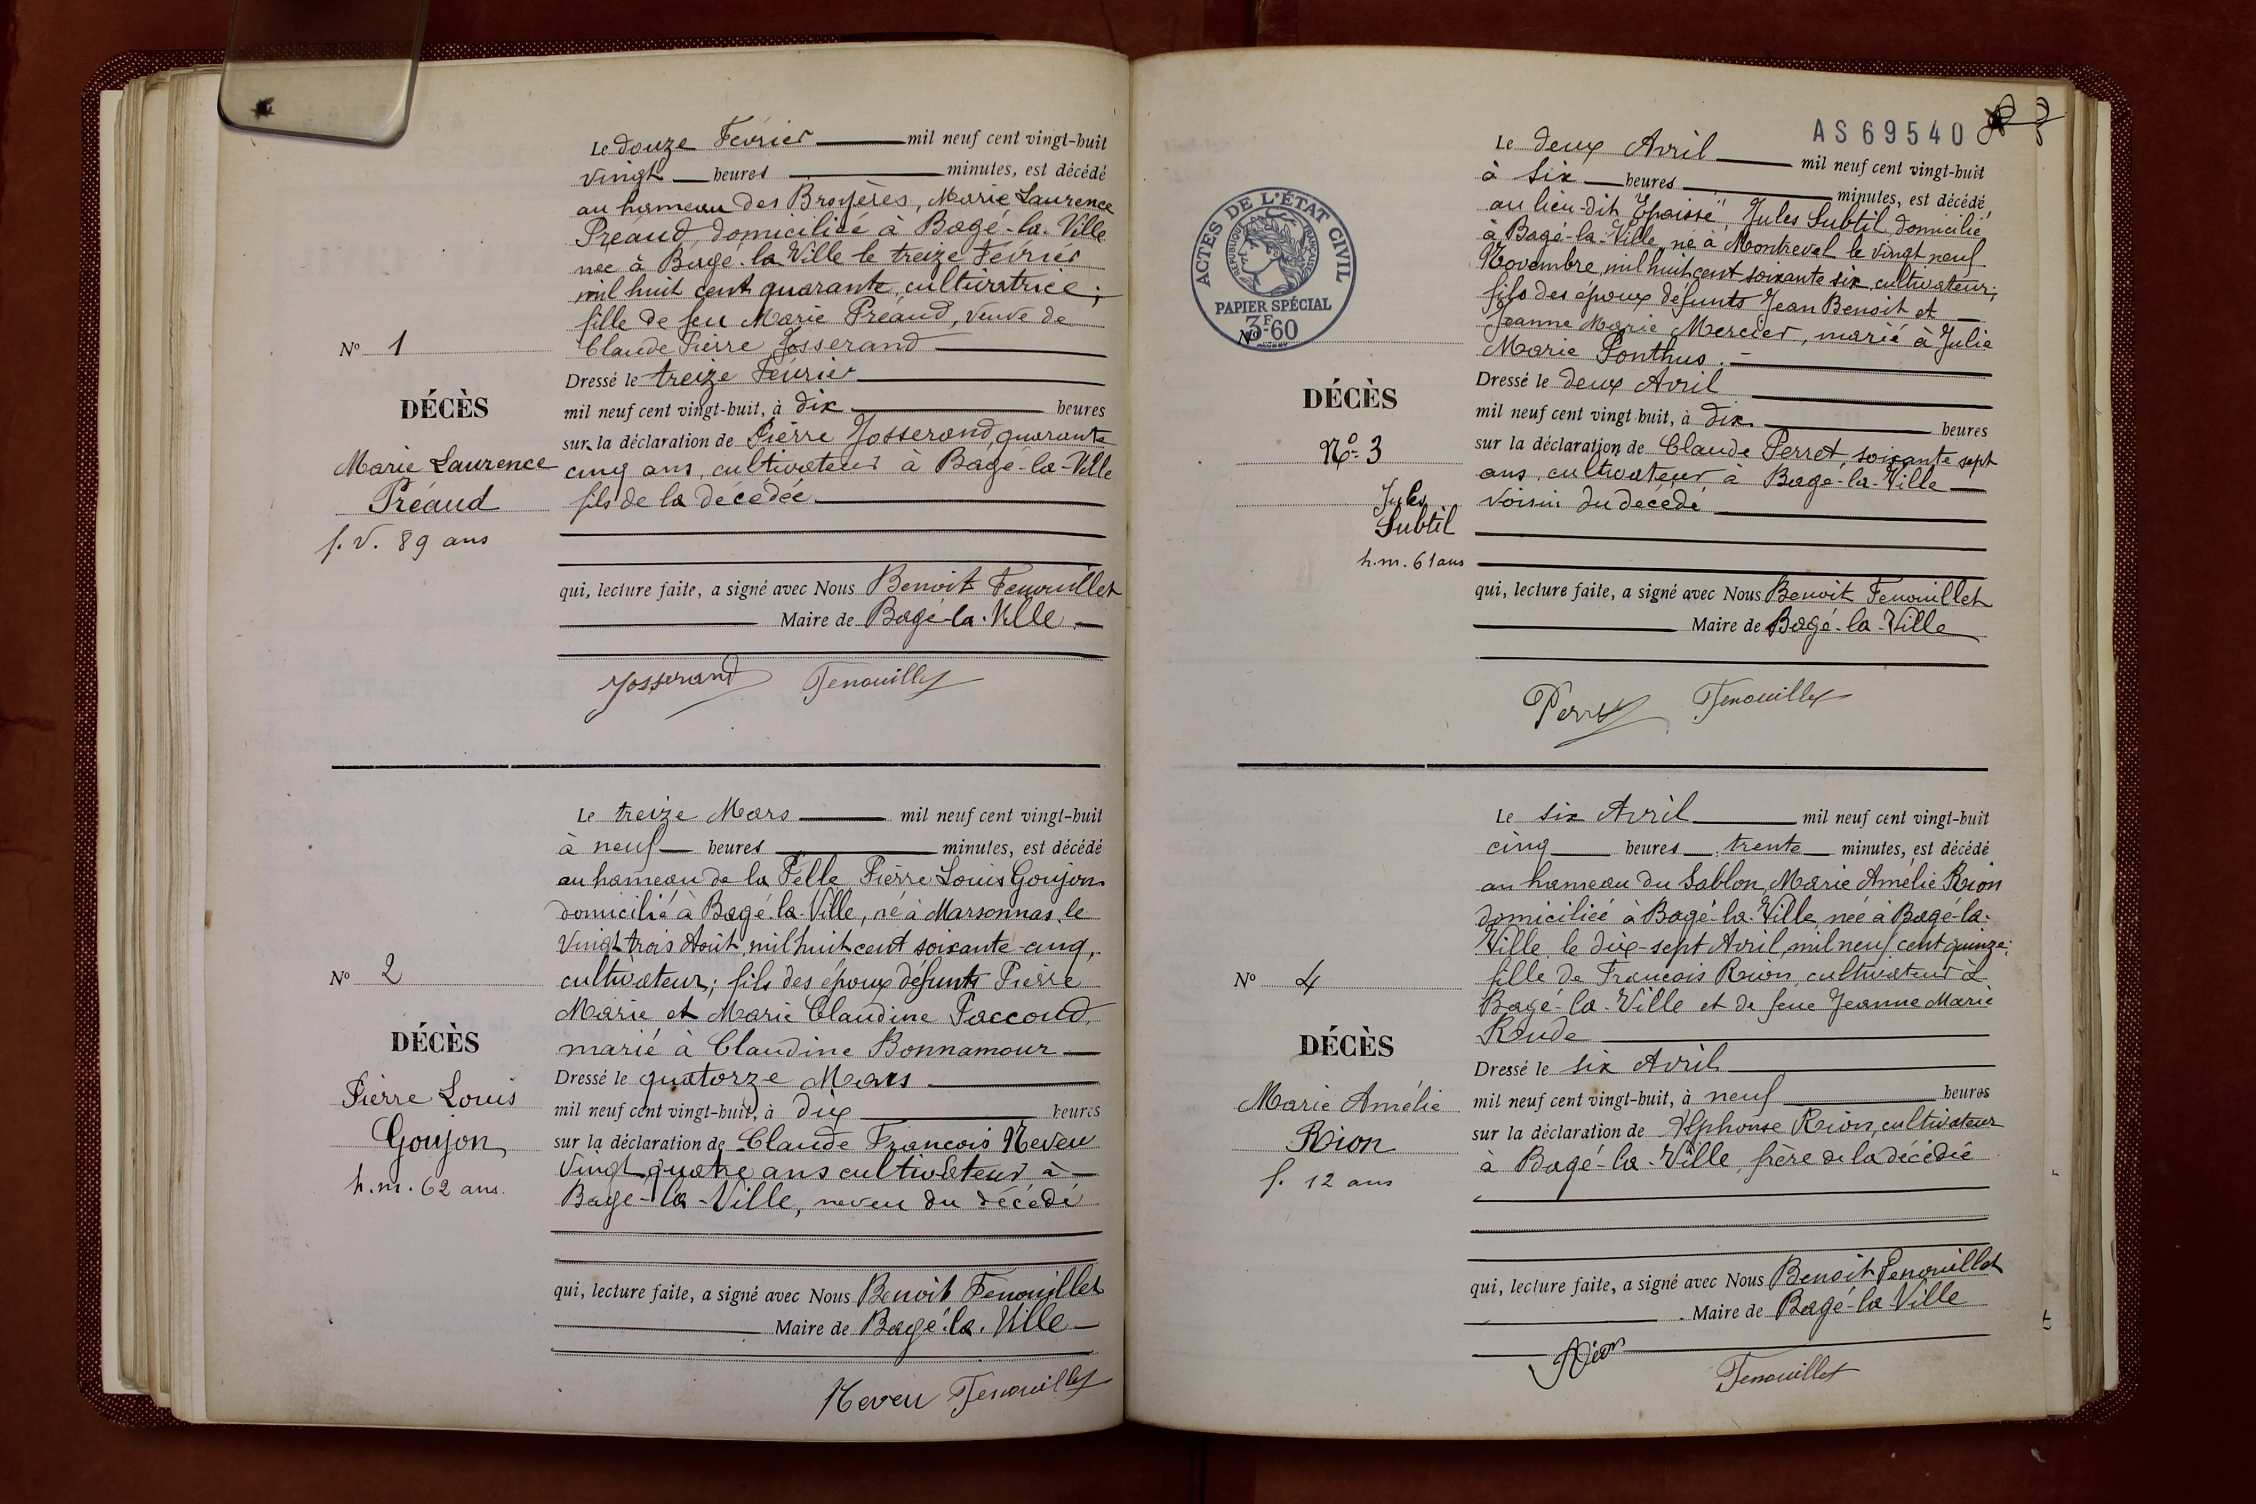 Le douze Février mil neuf cent vingt-huit
vingt heures minutes, est décédé
au hameau des Broyères, Marie Laurence
Préaud, domiciliée à Bagé-la-Ville
née à Bagé-la Ville le treize Février
mil huit cent quarante, cultivatrice;
fille de feu Marie Préaud, veuve de
Claude Pierre Josserand
Dressé le treize Février
mil neuf cent vingt-huit, à dix heures
sur la déclaration de Pierre Josserand, quarante
cinq ans, cultivateur à Bagé-la-Ville
fils de la décédée
qui, lecture faite, a signé avec Nous Benoit Fenouillet
Maire de Bagé-la-Ville
Josserand Fenouillet
N° 1
DÉCÈS
Marie Laurence
Préaud
f. V. 89 ans
Le treize Mars mil neuf cent vingt-huit
à neuf heures minutes, est décédé
au hameau de la Pelle Pierre Louis Goujon
domicilié à Bagé-la-Ville, né à Marsonnas, le
vingt trois Août, mil huit cent soixante-cinq,
cultivateur; fils des époux défunts Pierre
Marie et Marie Claudine Paccoud,
marié à Claudine Bonnamour
Dressé le quatorze Mars
mil neuf cent vingt-huit, à dix heures
sur la déclaration de Claude François Neveu
vingt quatre ans cultivateur à
Bagé-la-Ville, neveu du décédé
qui, lecture faite, a signé avec Nous Benoit Fenouillet
Maire de Bagé-la-Ville
Neveu Fenouillet
N° 2
DÉCÈS
Pierre Louis
Goujon
h. m. 62 ans
AS69540
Le deux Avril mil neuf cent vingt-huit
à six heures minutes, est décédé
au lieu-dit "Epaisse" Jules Subtil, domicilié
à Bagé-la-Ville, né à Montrevel le vingt neuf
Novembre, mil huit cent soixante six, cultivateur;
fils des époux défunts Jean Benoit et
Jeanne Marie Mercier, marié à Julie
Marie Ponthus.
Dressé le deux Avril
mil neuf cent vingt-huit, à dix heures
sur la déclaration de Claude Perret, soixante sept
ans, cultivateur à Bagé-la-Ville
voisin du décédé
qui, lecture faite, a signé avec Nous Benoit Fenouillet
Maire de Bagé-la-Ville
Perret Fenouillet
ACTES DE L'ÉTAT CIVIL
RÉPUBLIQUE FRANÇAISE
PAPIER SPÉCIAL
3F.60
N°
DÉCÈS
N° 3
Jules
Subtil
h. m. 61 ans
Le six Avril mil neuf cent vingt-huit
cinq heures trente minutes, est décédé
au hameau du Sablon, Marie Amélie Rion
domiciliée à Bagé-la-Ville, née à Bagé-la-
Ville, le dix-sept Avril, mil neuf cent quinze;
fille de François Rion, cultivateur à
Bagé-la-Ville et de feue Jeanne Marie
Rude
Dressé le six Avril
mil neuf cent vingt-huit, à neuf heures
sur la déclaration de Alphonse Rion, cultivateur
à Bagé-la-Ville, frère de la décédée
qui, lecture faite, a signé avec Nous Benoit Fenouillet
Maire de Bagé-la-Ville
Rion Fenouillet
N° 4
DÉCÈS
Marie Amélie
Rion
f. 12 ans